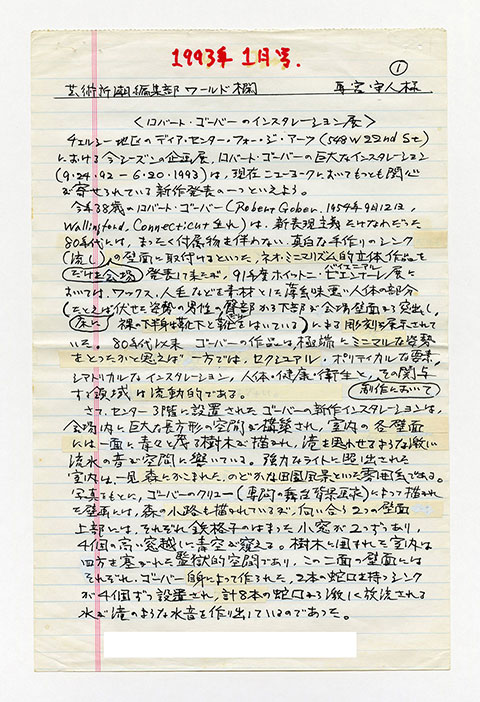 1993年1月号.
①
芸術新潮編集部 ワールド欄
様
〈ロバート・ゴーバーのインスタレーション展〉
チェルシー地区のディア・センター・フォー・ジ・アーツ(548 W 22nd St)
における今シーズンの企画展、ロバート・ゴーバーの巨大なインスタレーション
(9・24・92 – 6・20・1993)は、現在ニューヨークにおいてもっとも関心
を寄せられている新作発表の一つといえよう。
今年38歳のロバート・ゴーバー(Robert Gober, 1954年9月12日,
Wallingford, Connecticut生れ)は、新表現主義たけなわだった
80年代には、まったく付属物を伴わない真白な手作りのシンク
(流し)の壁面に取付けるといった、ネオ・ミニマリズム的立体作品を
だけを会場 発表して来たが、91年度ホイットニー・ビエンナーレ展に
バイエニアル
おいては、ワックス、人毛などを素材とした薄気味悪い人体の部分
(たとえば伏せた姿勢の男性の臀部から下部が会場壁面より突出し、
床に 裸の下半身は靴下と靴をはいている)による彫刻が展示されて
いた。80年代以来 ゴーバーの作品は極端にミニマルな姿勢
をとったかと思えば 一方では、セクシュアル・ポリティカルな要素、
シアトリカルなインスタレーション、人体・健康・衛生と、その関与
す 領域は流動的である。
創作において
さて、センター3階に設置されたゴーバーの新作インスタレーションは、
会場内に巨大な長方形の空間が構築され、室内の各壁面
には一面に青々と茂る樹木が描かれ、滝を思わせるような激しい
流水の音が空間に響いている。強力なライトに照し出された
室内は、一見 森にかこまれた、のどかな田園風景といった雰囲気である。
写真をもとに、ゴーバーのクリュー(専門の舞台背景画家)によって描かれ
た壁画には、森の小路も描かれているが、向い合う2つの壁面
上部には、それぞれ鉄格子のはまった小窓が2つずつあり、
4個の高い窓越しに青空が窺える。樹木に囲まれた室内は
四方を塞がれた監獄的空間であり、この二面の壁面には
それぞれ、ゴーバー自身によって作られた、2本の蛇口を持つシンク
が4個ずつ設置され、計8本の蛇口から激しく放流される
水が滝のような水音を作り出しているのであった。